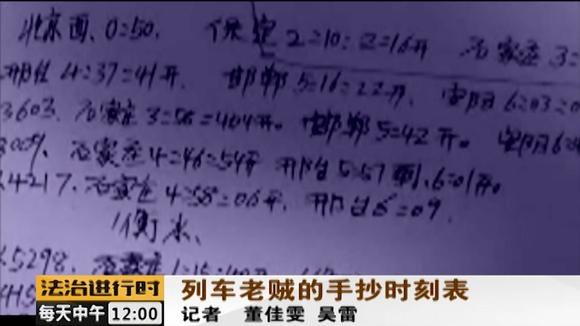 北京西、0=50、 保定 2=10=2=16开 石家庄 3=
邢台 4=37=41开. 邯郸 5=16=22开. 安阳 6=03=0
3603. 石家庄 3=58=404开. 邯郸 5=42开. 安阳 6=
3009. 石家庄 4=46=54开 邢台 5=57到.6=01开.
4217. 石家庄 4=58=06开. 邢台 5=09.
衡水、
.5298. 石家庄 1=15=
法治进行时
每天中午 12:00
列车老贼的手抄时刻表
记者 董佳雯 吴雷